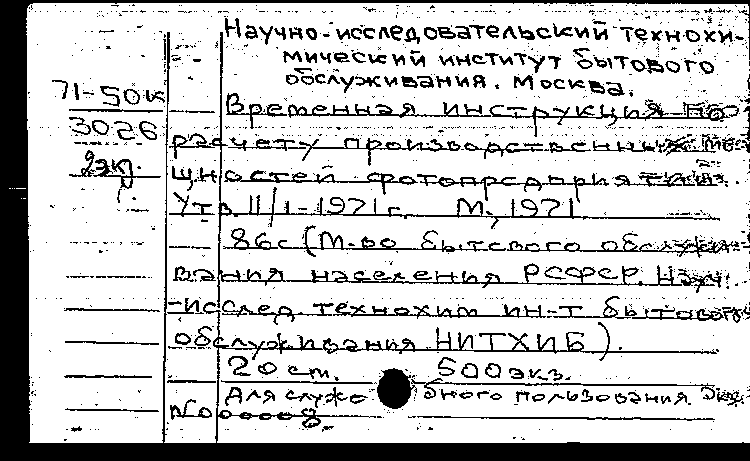 Научно-исследовательский технохи-
мический институт бытового
обслуживания. Москва.
71-50к
Временная инструкция по
3026
расчету производственных мо-
2экз.
щностей фотопредприятий.
Утв. 11/I-1971г. М., 1971
86с (М-во бытового обслужи-
вания населения РСФСР. Науч.
-исслед. технохим ин-т бытового
обслуживания НИТХИБ).
20 ст. 500экз.
Для служебного пользования Экз.
№00008.